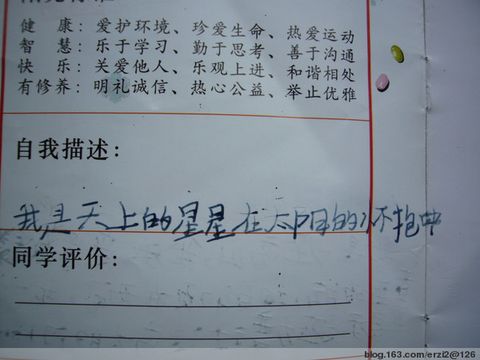 健　康：爱护环境、珍爱生命、热爱运动
智　慧：乐于学习、勤于思考、善于沟通
快　乐：关爱他人、乐观上进、和谐相处
有修养：明礼诚信、热心公益、举止优雅
自我描述：
我是天上的星星在太阳的怀抱中
同学评价：
blog.163.com/erzl2@126